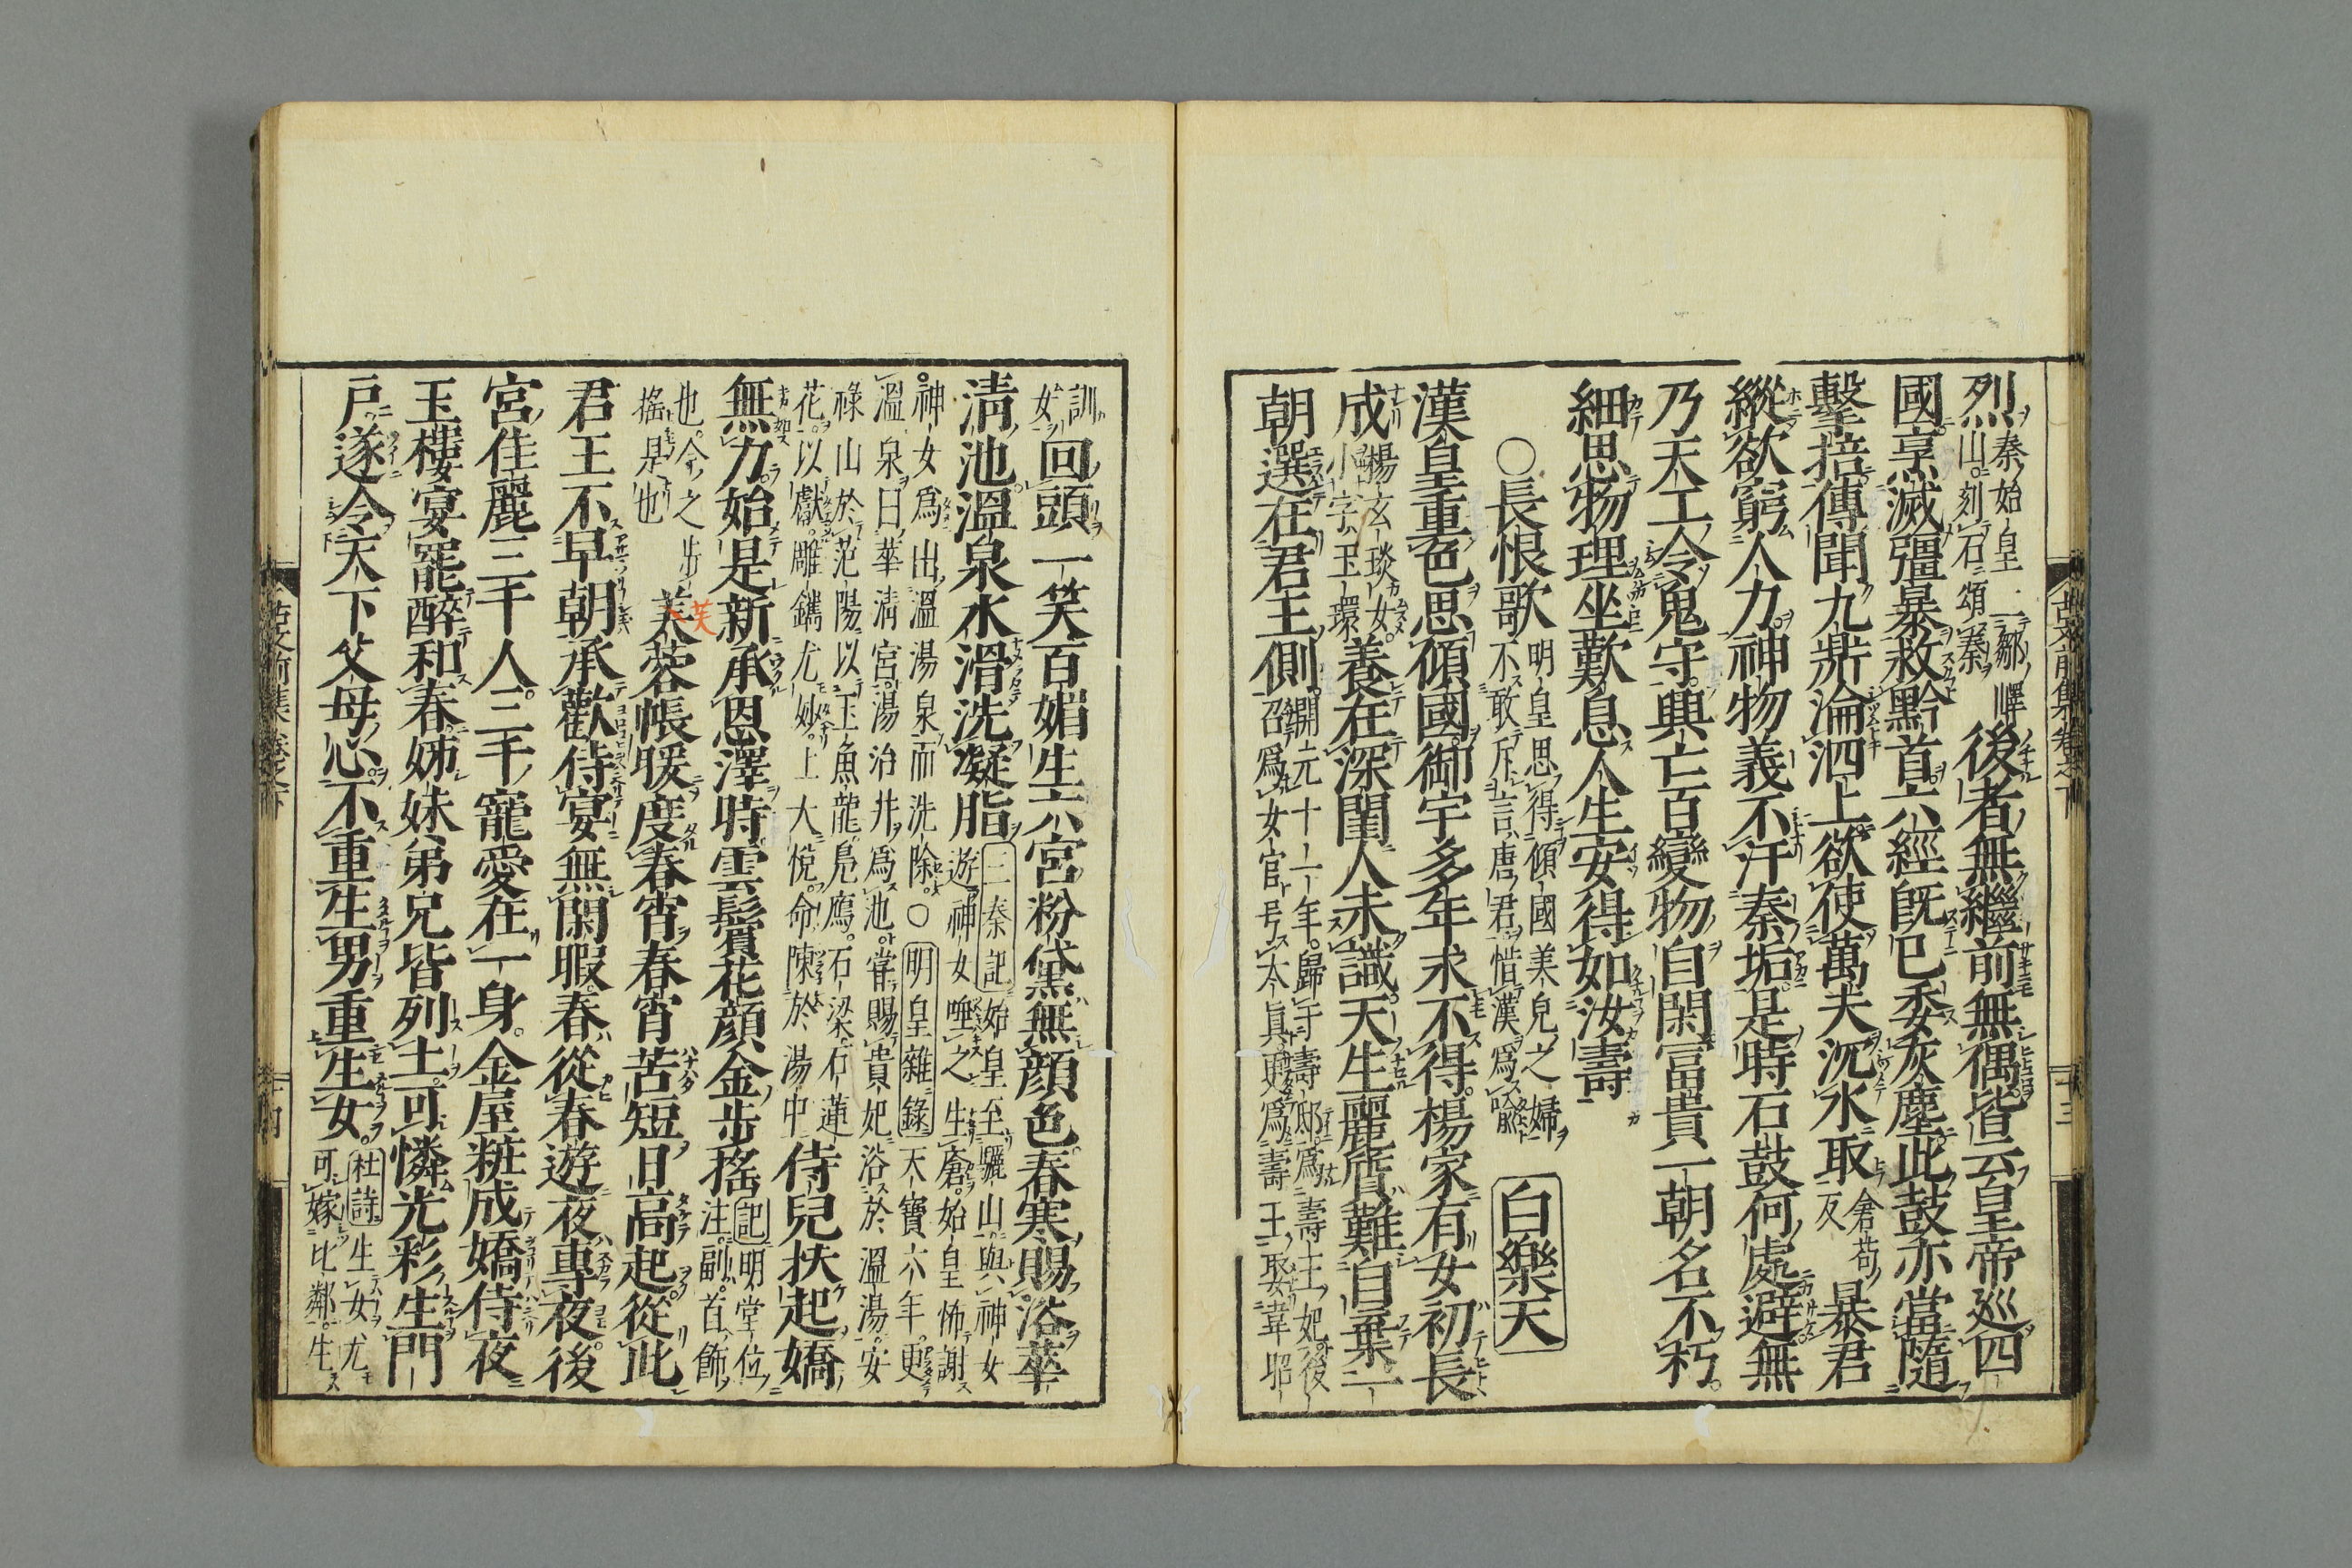 烈秦始皇二鄒嶧山刻石頌秦後者無繼前無偶皆云皇帝巡四
國烹滅彊暴救黔首六經既已委灰塵此鼓亦當隨
擊掊傳聞九鼎淪泗上欲使萬夫沉水取倉苟反暴君
縱欲窮人力神物義不汙秦垢是時石鼓何處避無
乃天工令鬼守興亡百變物自閑冨貴一朝名不朽
細思物理坐歎息人生安得如汝壽
○長恨歌明皇思得傾國美皃之婦不敢斥言唐君惜漢為喻白樂天
漢皇重色思傾國御宇多年求不得楊家有女初長
成楊玄琰女小字玉環養在深閨人未識天生麗質難自棄一
朝選在君王側開元十一年歸于壽邸為壽王妃後召為女官号太眞更為壽王娶韋昭
訓女回頭一笑百媚生六宮粉黛無顏色春寒賜浴華
淸池溫泉水滑洗凝脂三秦記始皇至驪山與神女遊神女唾之生瘡始皇怖謝
神女為出溫湯泉而洗除○明皇雜錄天寶六年更
溫泉曰華淸宮湯治井為池嘗賜貴妃浴於溫湯安
祿山於范陽以玉魚龍鳧鴈石梁石蓮
花以獻雕鐫尤妙上大悅命陳於湯中侍兒扶起嬌
無力始是新承恩澤時雲鬢花顏金步搖記明堂位注副首飾
也今之步搖是也芙蓉帳暖度春宵春宵苦短日高起從此
君王不早朝承歡侍宴無閑暇春從春遊夜專夜後
宮佳麗三千人三千寵愛在一身金屋粧成嬌侍夜
玉樓宴罷醉和春姊妹弟兄皆列土可憐光彩生門
戶遂令天下父母心不重生男重生女杜詩生女尤可嫁比鄰生
古文前集卷之下
十三
古文前集卷之下
十四